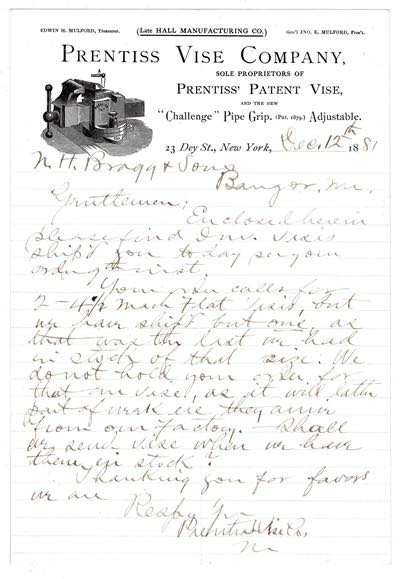 EDWIN H. MULFORD, Treasurer. (Late HALL MANUFACTURING CO.) Gen'l JNO. E. MULFORD, Pres't.
PRENTISS VISE COMPANY,
SOLE PROPRIETORS OF
PRENTISS' PATENT VISE,
AND THE NEW
"Challenge" Pipe Grip. (Pat. 1879.) Adjustable.
23 Dey St., New York, Dec. 12th 1881
N. H. Bragg & Sons
Bangor, Me.
Gentlemen;
Enclosed herein
please find Inv. Vises
ship'd you today per your
order 9th inst.
Your order calls for
2-4½ inch Flat Vises, but
we have ship't but one as
that was the last we had
in stock of that size. We
do not hold your order for
that one vise, as it will latter
part of week ere they arrive
from our Factory. Shall
we send vise when we have
them in stock?
Thanking you for favors
we are
Respy Yrs
Prentiss Vise Co.